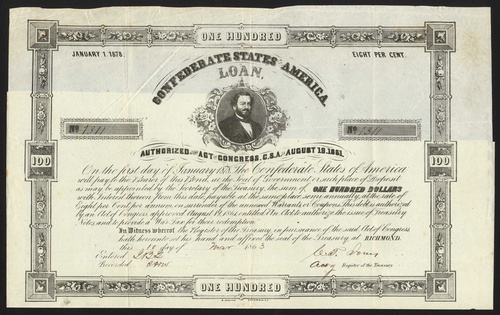 ONE HUNDRED
JANUARY 1. 1878. EIGHT PER CENT.
CONFEDERATE STATES AMERICA.
LOAN.
AUTHORIZED BY ACT OF CONGRESS, C.S.A. OF AUGUST 19. 1861.
100 100
On the first day of January 1878, The Confederate States of America
will pay to the Bearer of this Bond, at the Seat of Government, or such place of Deposit
as may be appointed by the Secretary of the Treasury, the sum of ONE HUNDRED DOLLARS
with Interest thereon from this date, payable at the same place semi annually, at the rate of
Eight per Cent per annum, on surrender of the annexed Warrants or Coupons. This debt is authorized
by an Act of Congress approved August 19, 1861, entitled An Act to authorize the issue of Treasury
Notes, and to provide a War Tax for their redemption.
In Witness whereof, the Register of the Treasury, in pursuance of the said Act of Congress
hath hereunto set his hand and affixed the seal of the Treasury at RICHMOND.
this day of 1863
Entered
Recorded Register of the Treasury
ONE HUNDRED